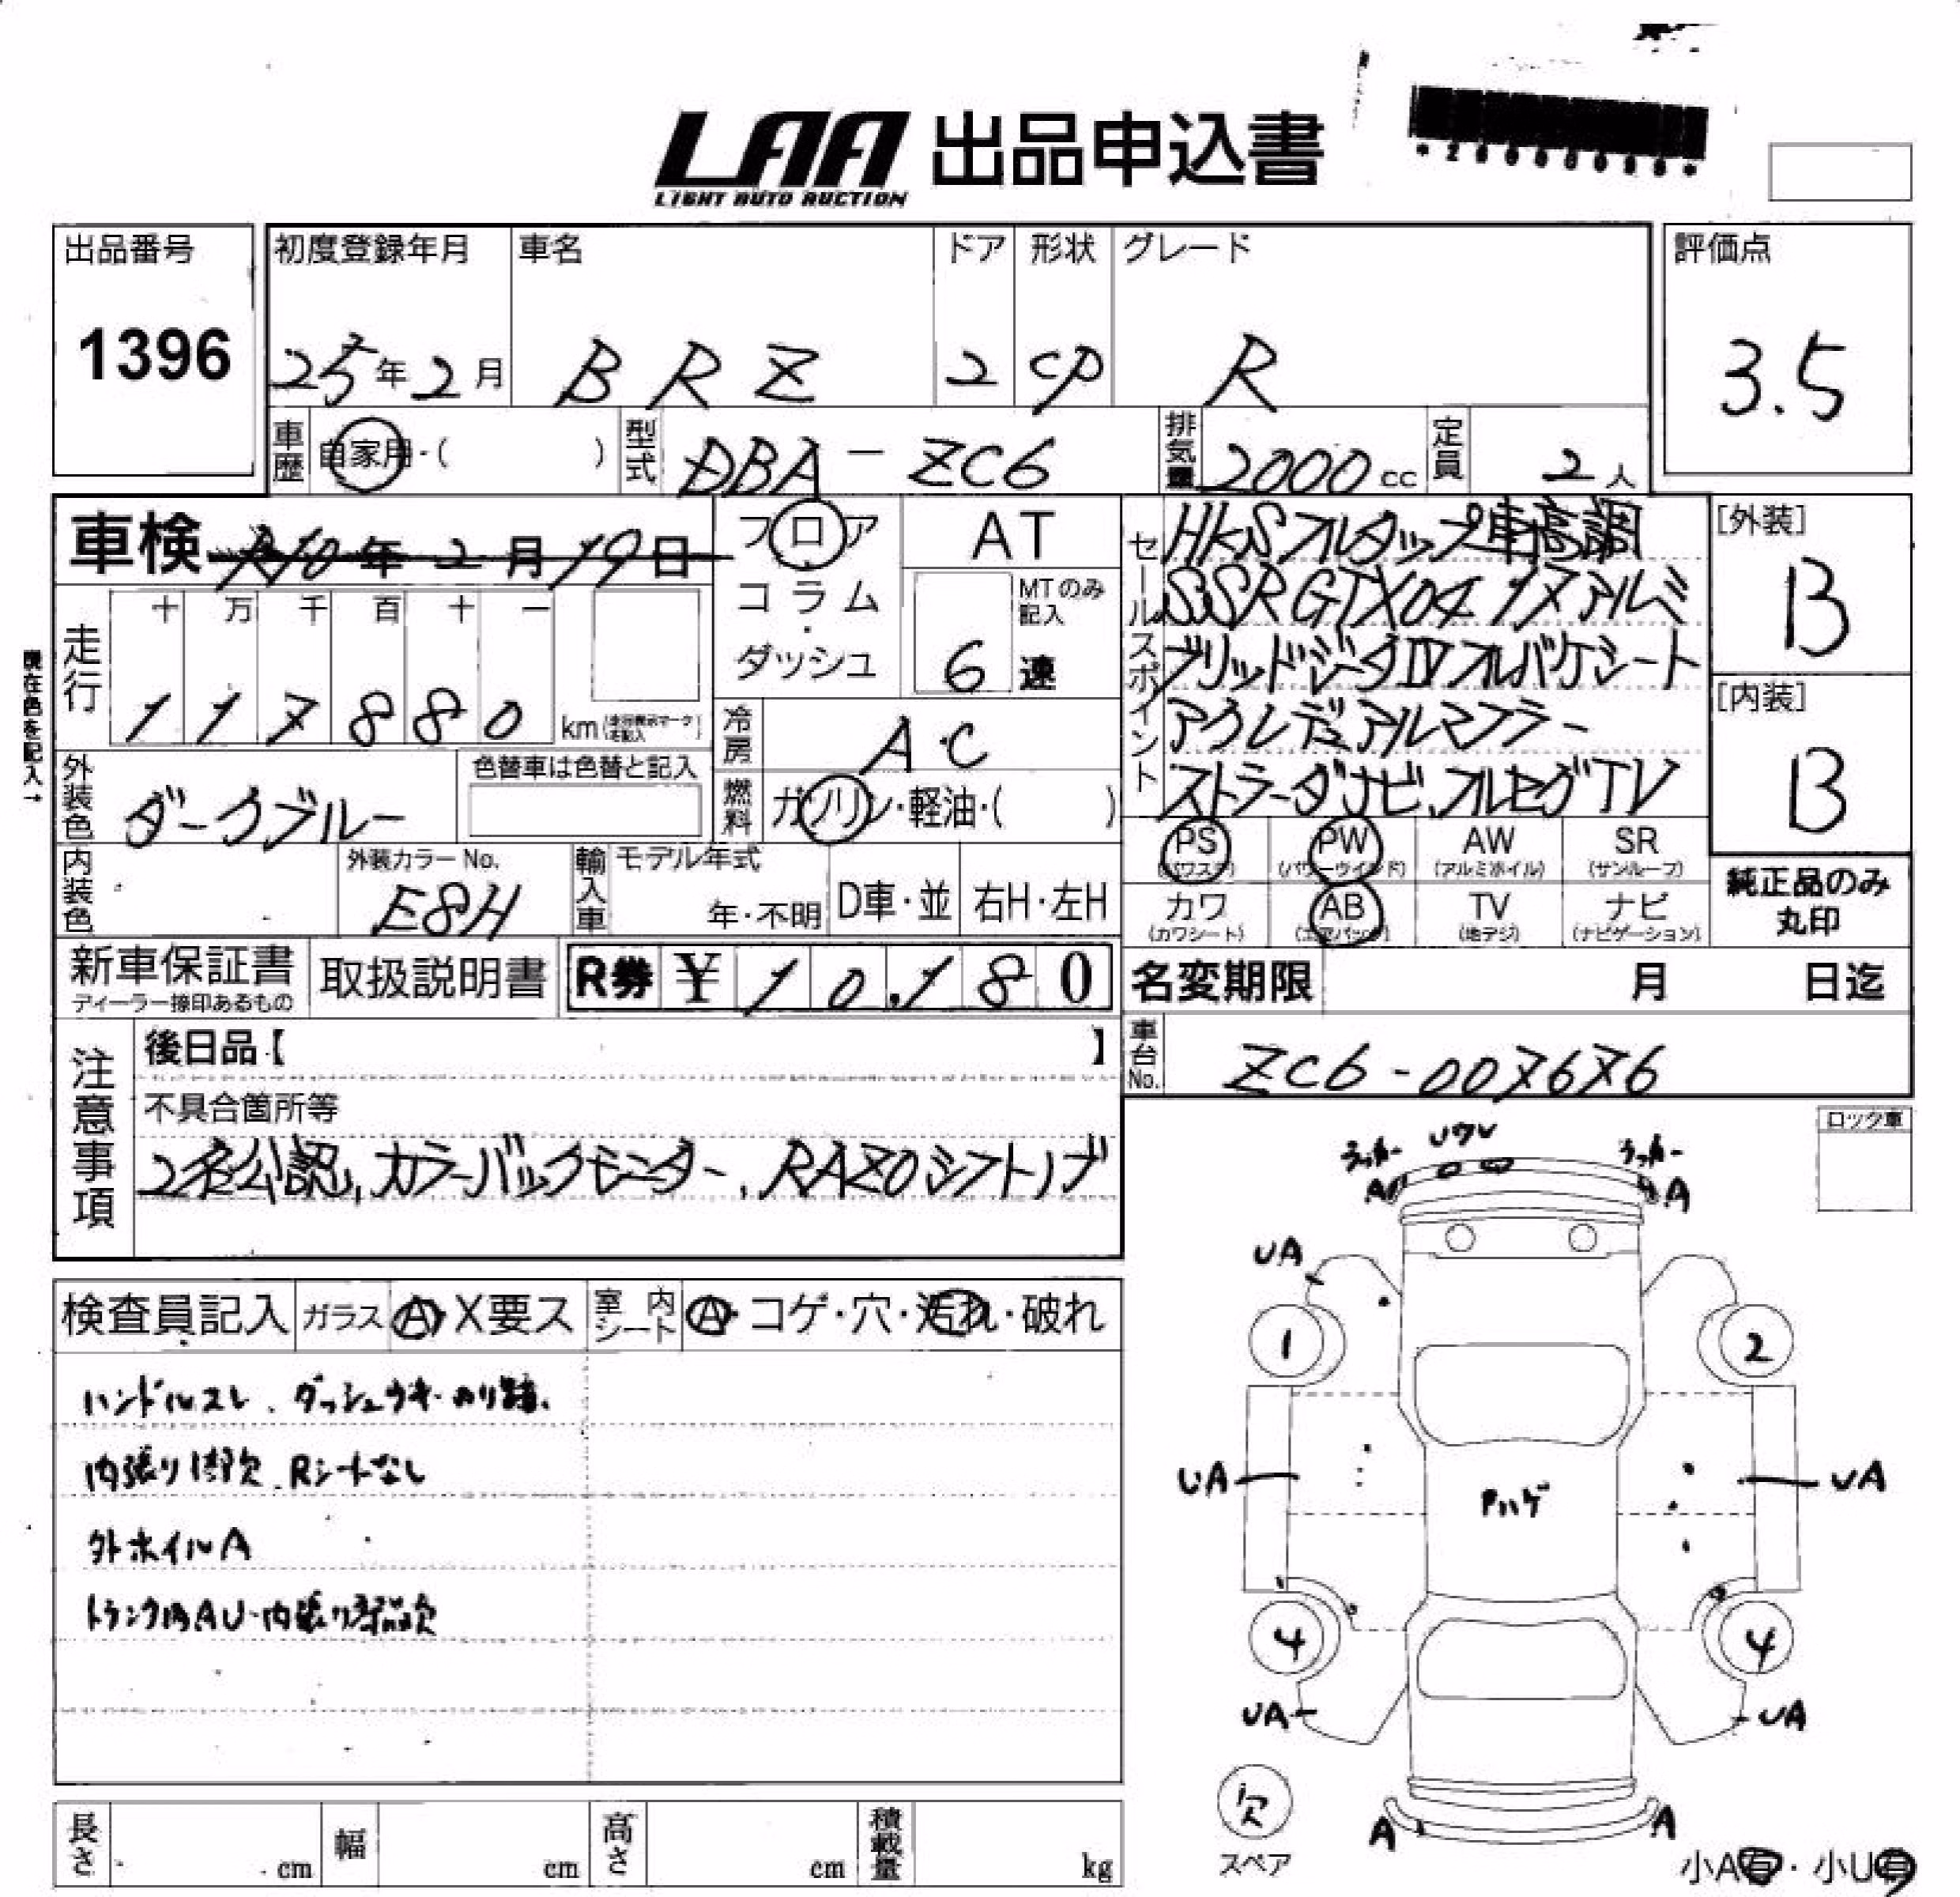 LAA 出品申込書
LIGHT AUTO AUCTION
出品番号
1396
初度登録年月
25年2月
車名
BRZ
ドア
2
形状
CP
グレード
R
評価点
3.5
車歴
自家用・( )
型式
DBA-ZC6
排気量
2000cc
定員
2人
車検 R10年2月19日
フロア
コラム
・
ダッシュ
AT
MTのみ記入
6速
走行
十 万 千 百 十 一
117880
km
現在色を記入→
冷房
AC
燃料
ガソリン・軽油・( )
外装色
ダークブルー
色替車は色替と記入
内装色
外装カラーNo.
E8H
輸入車
モデル年式
年・不明
D車・並
右H・左H
セールスポイント
HKSフルタップ車高調
SSR GTX04 17アルミ
ブリッドジータIVフルバケシート
フルマフラー
ストラーダナビ、フルセグTV
[外装]
B
[内装]
B
PS
(パワステ)
PW
(パワーウインド)
AW
(アルミホイル)
SR
(サンルーフ)
カワ
(カワシート)
AB
(エアバック)
TV
(地デジ)
ナビ
(ナビゲーション)
純正品のみ
丸印
新車保証書
ディーラー捺印あるもの
取扱説明書
R券 ¥10,180
名変期限 月 日迄
車台No.
ZC6-007676
注意事項
後日品【 】
不具合箇所等
2名公認、カラーバックモニター、RAZOシフトノブ
ロック車
検査員記入
ガラス A・X要ス
室内シート A・コゲ・穴・汚れ・破れ
ハンドルスレ、ダッシュウキ・のり跡、
内張り1部欠、Rシートなし
外ホイルA
トランク内AU・内張り部品欠
長さ cm
幅 cm
高さ cm
積載量 kg
ラッカー
Uワレ
ラッカー
A
A
UA
1
2
UA
Pハゲ
UA
4
4
UA
UA
欠
スペア
A
A
小A有・小U有